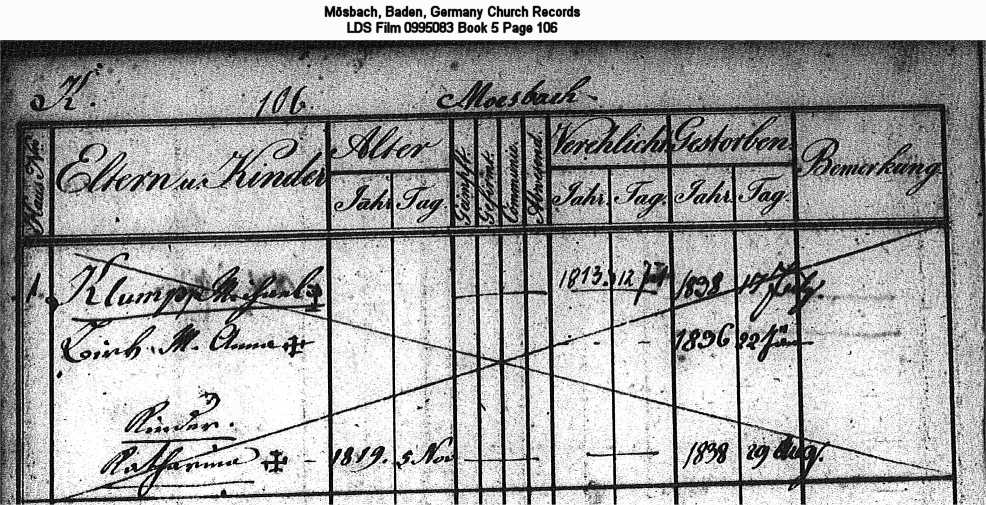 Mösbach, Baden, Germany Church Records
LDS Film 0995083 Book 5 Page 106
K. 106. Moesbach
Haus Nro. Eltern u. Kinder Alter Geimpft. Gefirmt. Communic. Abwesend. Verehlicht Gestorben Bemerkung.
Jahr Tag. Jahr. Tag. Jahr. Tag.
1. Klumpp Michael ‡ 1813. 12 1838 17 July.
Zirk M. Anna ‡ - - 1836 22 Jän
Kinder.
Katharina ‡ - 1819. 5 Nov 1838 29 Aug.